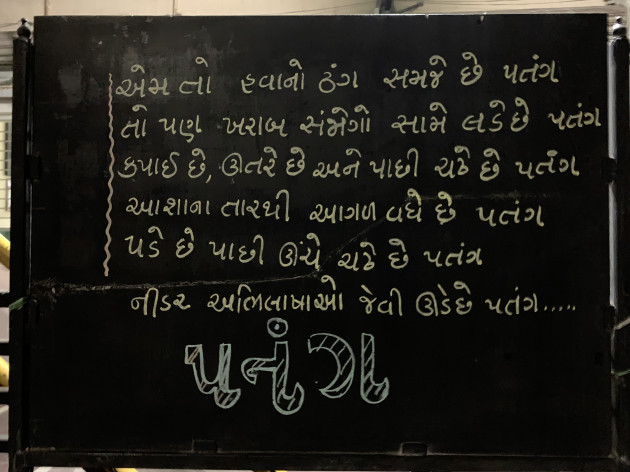 એમ તો હવાનો ઠંગ સમજે છે પતંગ
તો પણ ખરાબ સંજોગો સામે લડે છે પતંગ
કપાઈ છે, ઊતરે છે અને પાછી ચઢે છે પતંગ
આશાના તારથી આગળ વધે છે પતંગ
પડે છે પાછી ઊંચે ચઢે છે પતંગ
નીડર અભિલાષાઓ જેવી ઊડે છે પતંગ.....
પતંગ